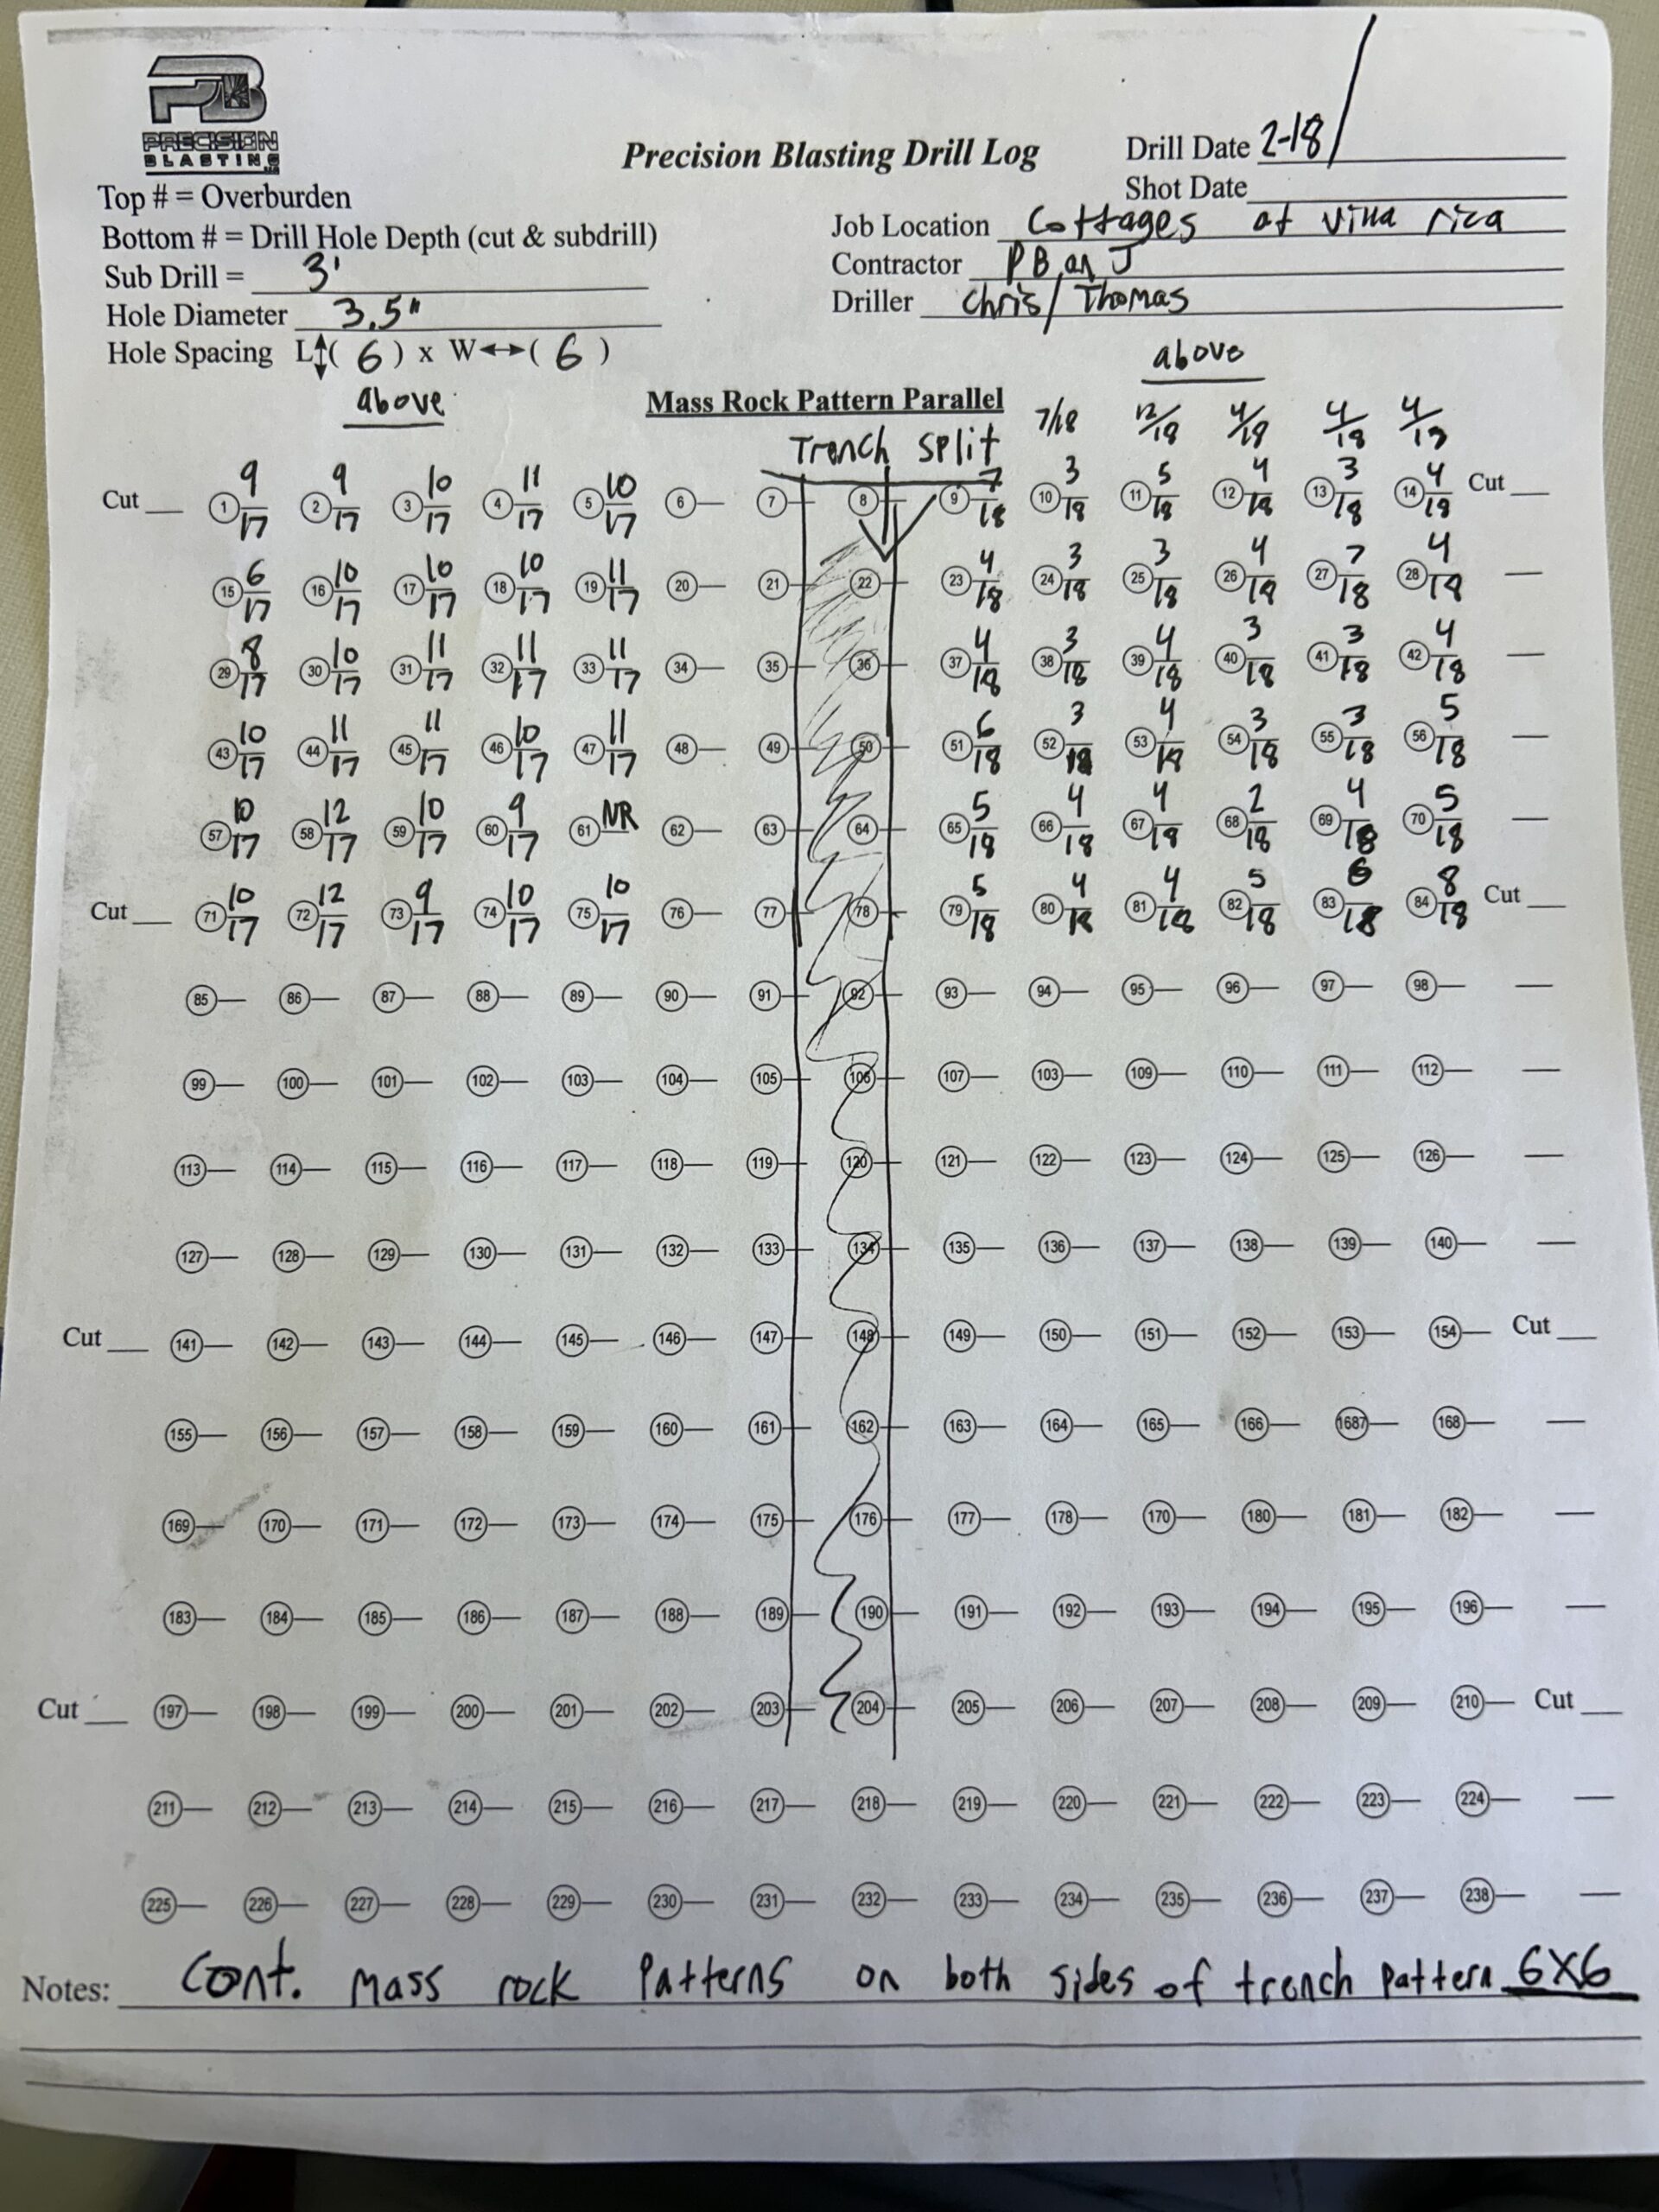 PB
PRECISION
BLASTING LLC
Precision Blasting Drill Log
Drill Date 2-18
Shot Date
Top # = Overburden
Bottom # = Drill Hole Depth (cut & subdrill)
Sub Drill = 3'
Hole Diameter 3.5"
Hole Spacing L↕( 6 ) x W↔( 6 )
Job Location Cottages at villa rica
Contractor PB an J
Driller Chris/Thomas
above
above
Mass Rock Pattern Parallel
7/18 12/18 4/18 4/18 4/19
Trench split
Cut 1 9/17 2 9/17 3 10/17 4 11/17 5 10/17 6 7 8 9 7/18 10 3/18 11 5/18 12 4/18 13 3/18 14 4/18 Cut
15 6/17 16 10/17 17 10/17 18 10/17 19 11/17 20 21 22 23 4/18 24 3/18 25 3/18 26 4/18 27 7/18 28 4/18
29 8/17 30 10/17 31 11/17 32 11/17 33 11/17 34 35 36 37 4/18 38 3/18 39 4/18 40 3/18 41 3/18 42 4/18
43 10/17 44 11/17 45 11/17 46 10/17 47 11/17 48 49 50 51 6/18 52 3/18 53 4/18 54 3/18 55 3/18 56 5/18
57 10/17 58 12/17 59 10/17 60 9/17 61 NR 62 63 64 65 5/18 66 4/18 67 4/18 68 2/18 69 4/18 70 5/18
Cut 71 10/17 72 12/17 73 9/17 74 10/17 75 10/17 76 77 78 79 5/18 80 4/18 81 4/18 82 5/18 83 6/18 84 8/18 Cut
85 86 87 88 89 90 91 92 93 94 95 96 97 98
99 100 101 102 103 104 105 106 107 103 109 110 111 112
113 114 115 116 117 118 119 120 121 122 123 124 125 126
127 128 129 130 131 132 133 134 135 136 137 138 139 140
Cut 141 142 143 144 145 146 147 148 149 150 151 152 153 154 Cut
155 156 157 158 159 160 161 162 163 164 165 166 1687 168
169 170 171 172 173 174 175 176 177 178 170 180 181 182
183 184 185 186 187 188 189 190 191 192 193 194 195 196
Cut 197 198 199 200 201 202 203 204 205 206 207 208 209 210 Cut
211 212 213 214 215 216 217 218 219 220 221 222 223 224
225 226 227 228 229 230 231 232 233 234 235 236 237 238
Notes: Cont. mass rock Patterns on both sides of trench pattern 6X6